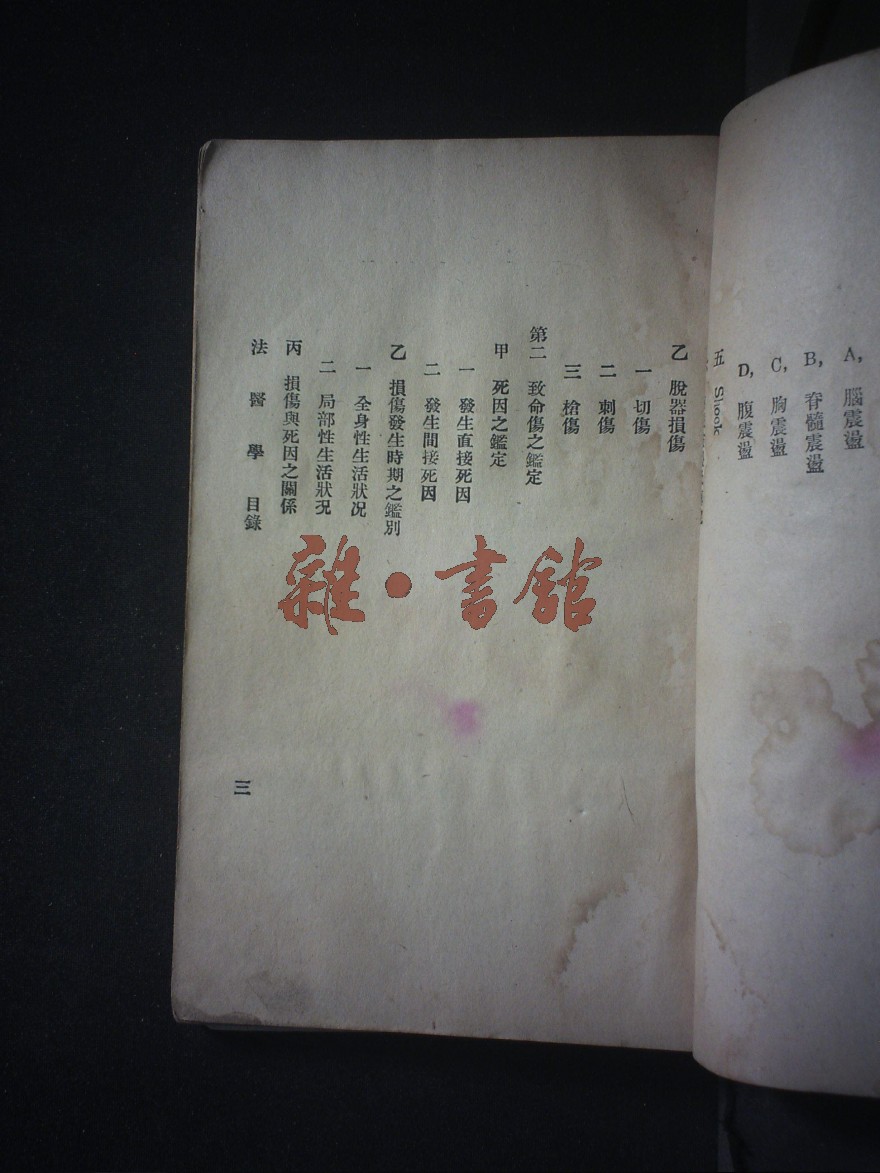 A, 腦震盪
B, 脊髓震盪
C, 胸震盪
D, 腹震盪
五 Shock
乙 脫器損傷
一 切傷
二 刺傷
三 槍傷
第二 致命傷之鑑定
甲 死因之鑑定
一 發生直接死因
二 發生間接死因
乙 損傷發生時期之鑑別
一 全身性生活狀况
二 局部性生活狀况
丙 損傷與死因之關係
法醫學 目錄
三
雜·書館